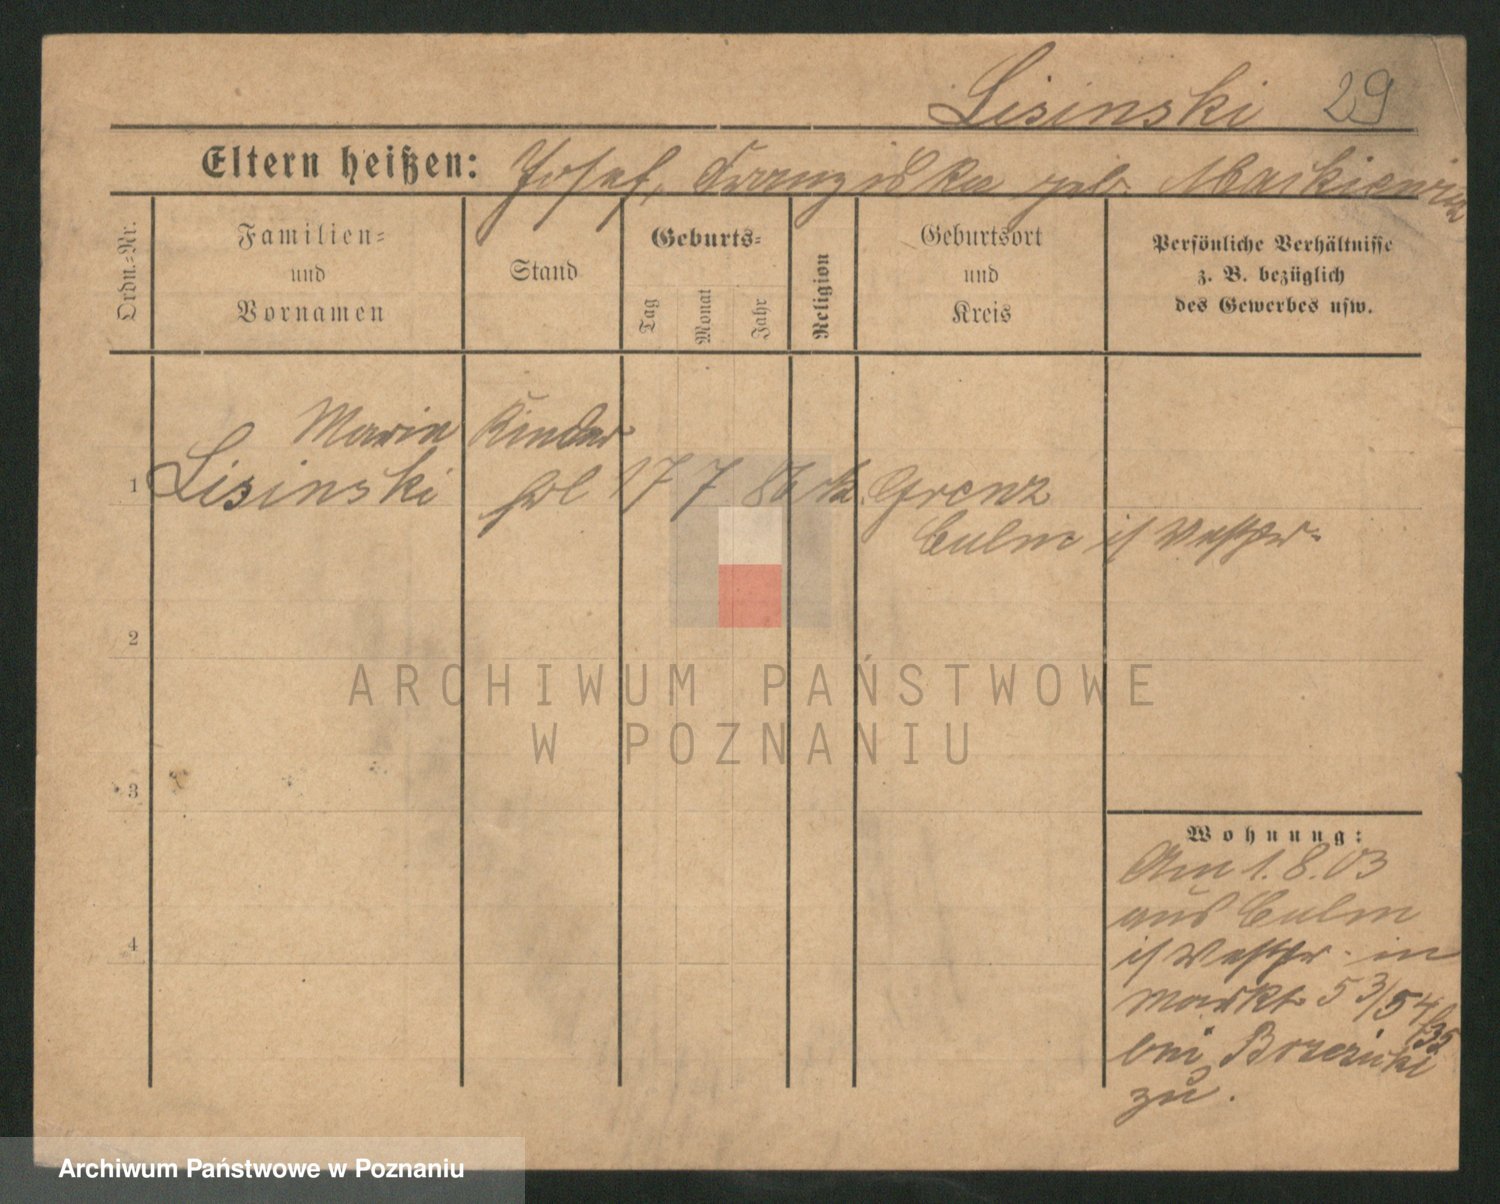 Lisinski 29
Eltern heißen: Josef, Franziska geb. Maikiewicz
Ordn.=Nr.
Familien=
und
Vornamen
Stand
Geburts=
Tag
Monat
Jahr
Religion
Geburtsort
und
Kreis
Persönliche Verhältnisse
z. B. bezüglich
des Gewerbes usw.
Marie
1 Lisinski 17 7 86 k. Grenz
Culm i/ Westpr.
2
3
4
ARCHIWUM PAŃSTWOWE
W POZNANIU
Wohnung:
Am 1.8.03
aus Culm
i/ Westpr. in
Markt 53/54
bei
zu.
Archiwum Państwowe w Poznaniu